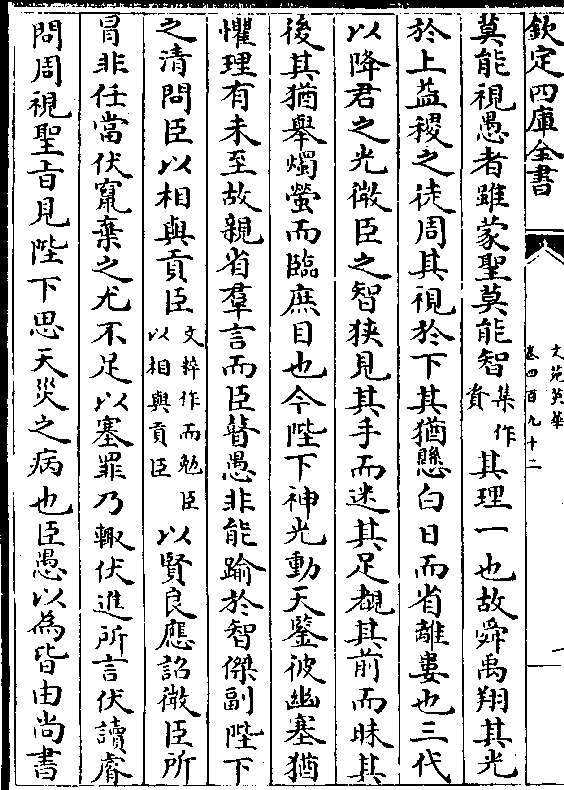 欽定四庫全書
文苑英華
卷四百九十二
莫能視愚者雖蒙聖莫能智集作賁其理一也故舜禹翔其光
於上益稷之徒周其視於下其猶懸白日而省離婁也三代
以降君之光微臣之智狹見其手而迷其足覩其前而昧其
後其猶舉燭螢而臨庶目也今陛下神光動天鑒彼幽塞猶
懼理有未至故親省羣言而臣瞽愚非能踰於智傑副陛下
之清問臣以相與貢臣文粹作而勉臣以相與貢臣以賢良應詔微臣所
冒非任當伏竄棄之尤不足以塞罪乃輒伏進所言伏讀睿
問周視聖旨見陛下思天災之病也臣愚以為皆由尚書